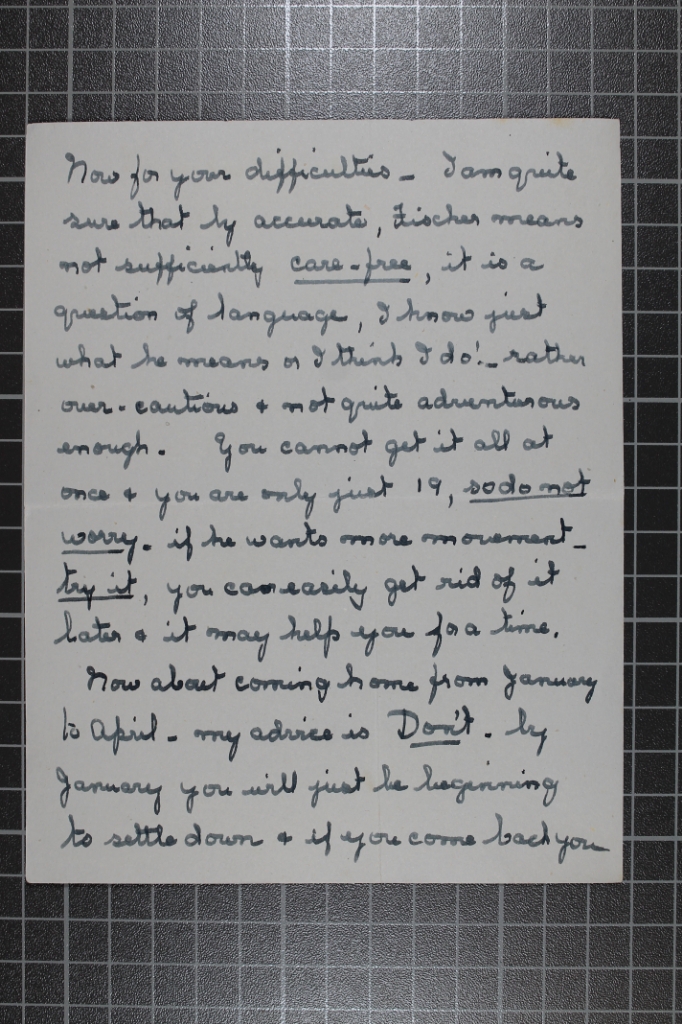 Now for your difficulties - I am quite
sure that by accurate, Fischer means
not sufficiently care-free, it is a
question of language, I know just
what he means or I think I do! - rather
over-cautious & not quite adventurous
enough. You cannot get it all at
once & you are only just 19, so do not
worry. if he wants more movement -
try it, you can easily get rid of it
later & it may help you for a time.
Now about coming home from January
to April - my advice is Don't. by
January you will just be beginning
to settle down & if you come back you